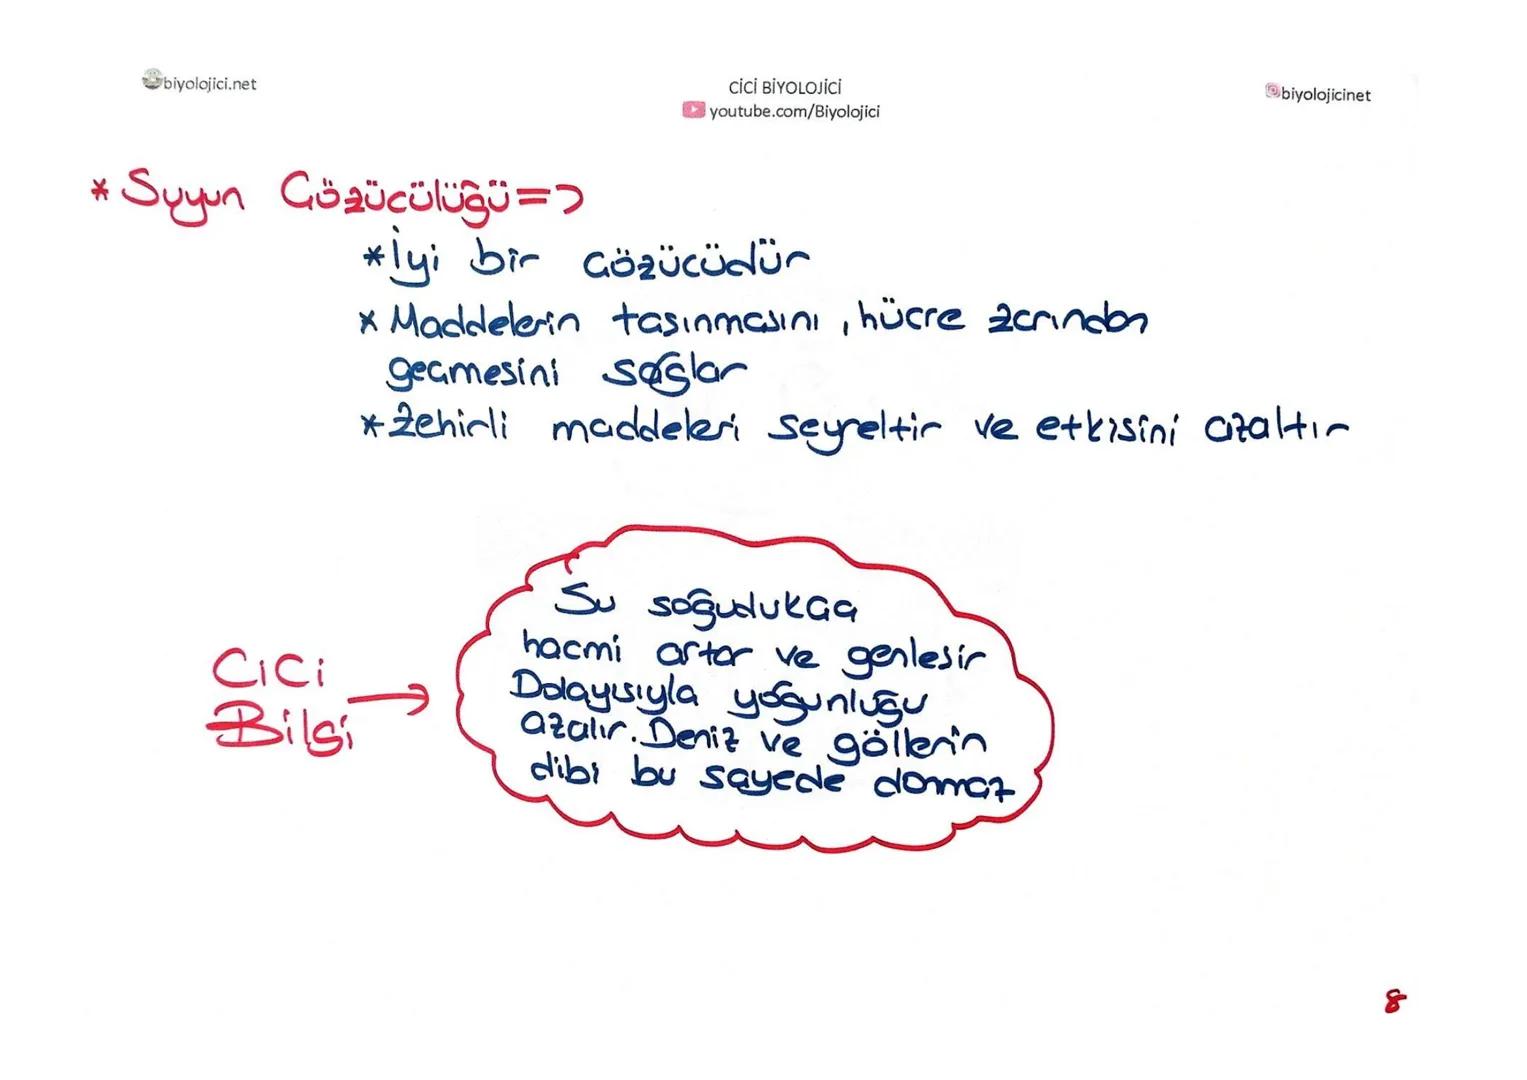 biyolojici.net
CİCİ BİYOLOJİCİ
youtube.com/Biyolojici
biyolojicinet
* Suyun Çözücülüğü =>
* İyi bir çözücüdür
* Maddelerin taşınmasını, hücre zarından
geçmesini sağlar
* Zehirli maddeleri seyreltir ve etkisini azaltır
Cici
Bilgi
Su soğudukça
hacmi artar ve genleşir
Dolayısıyla yoğunluğu
azalır. Deniz ve göllerin
dibi bu sayede donmaz
8